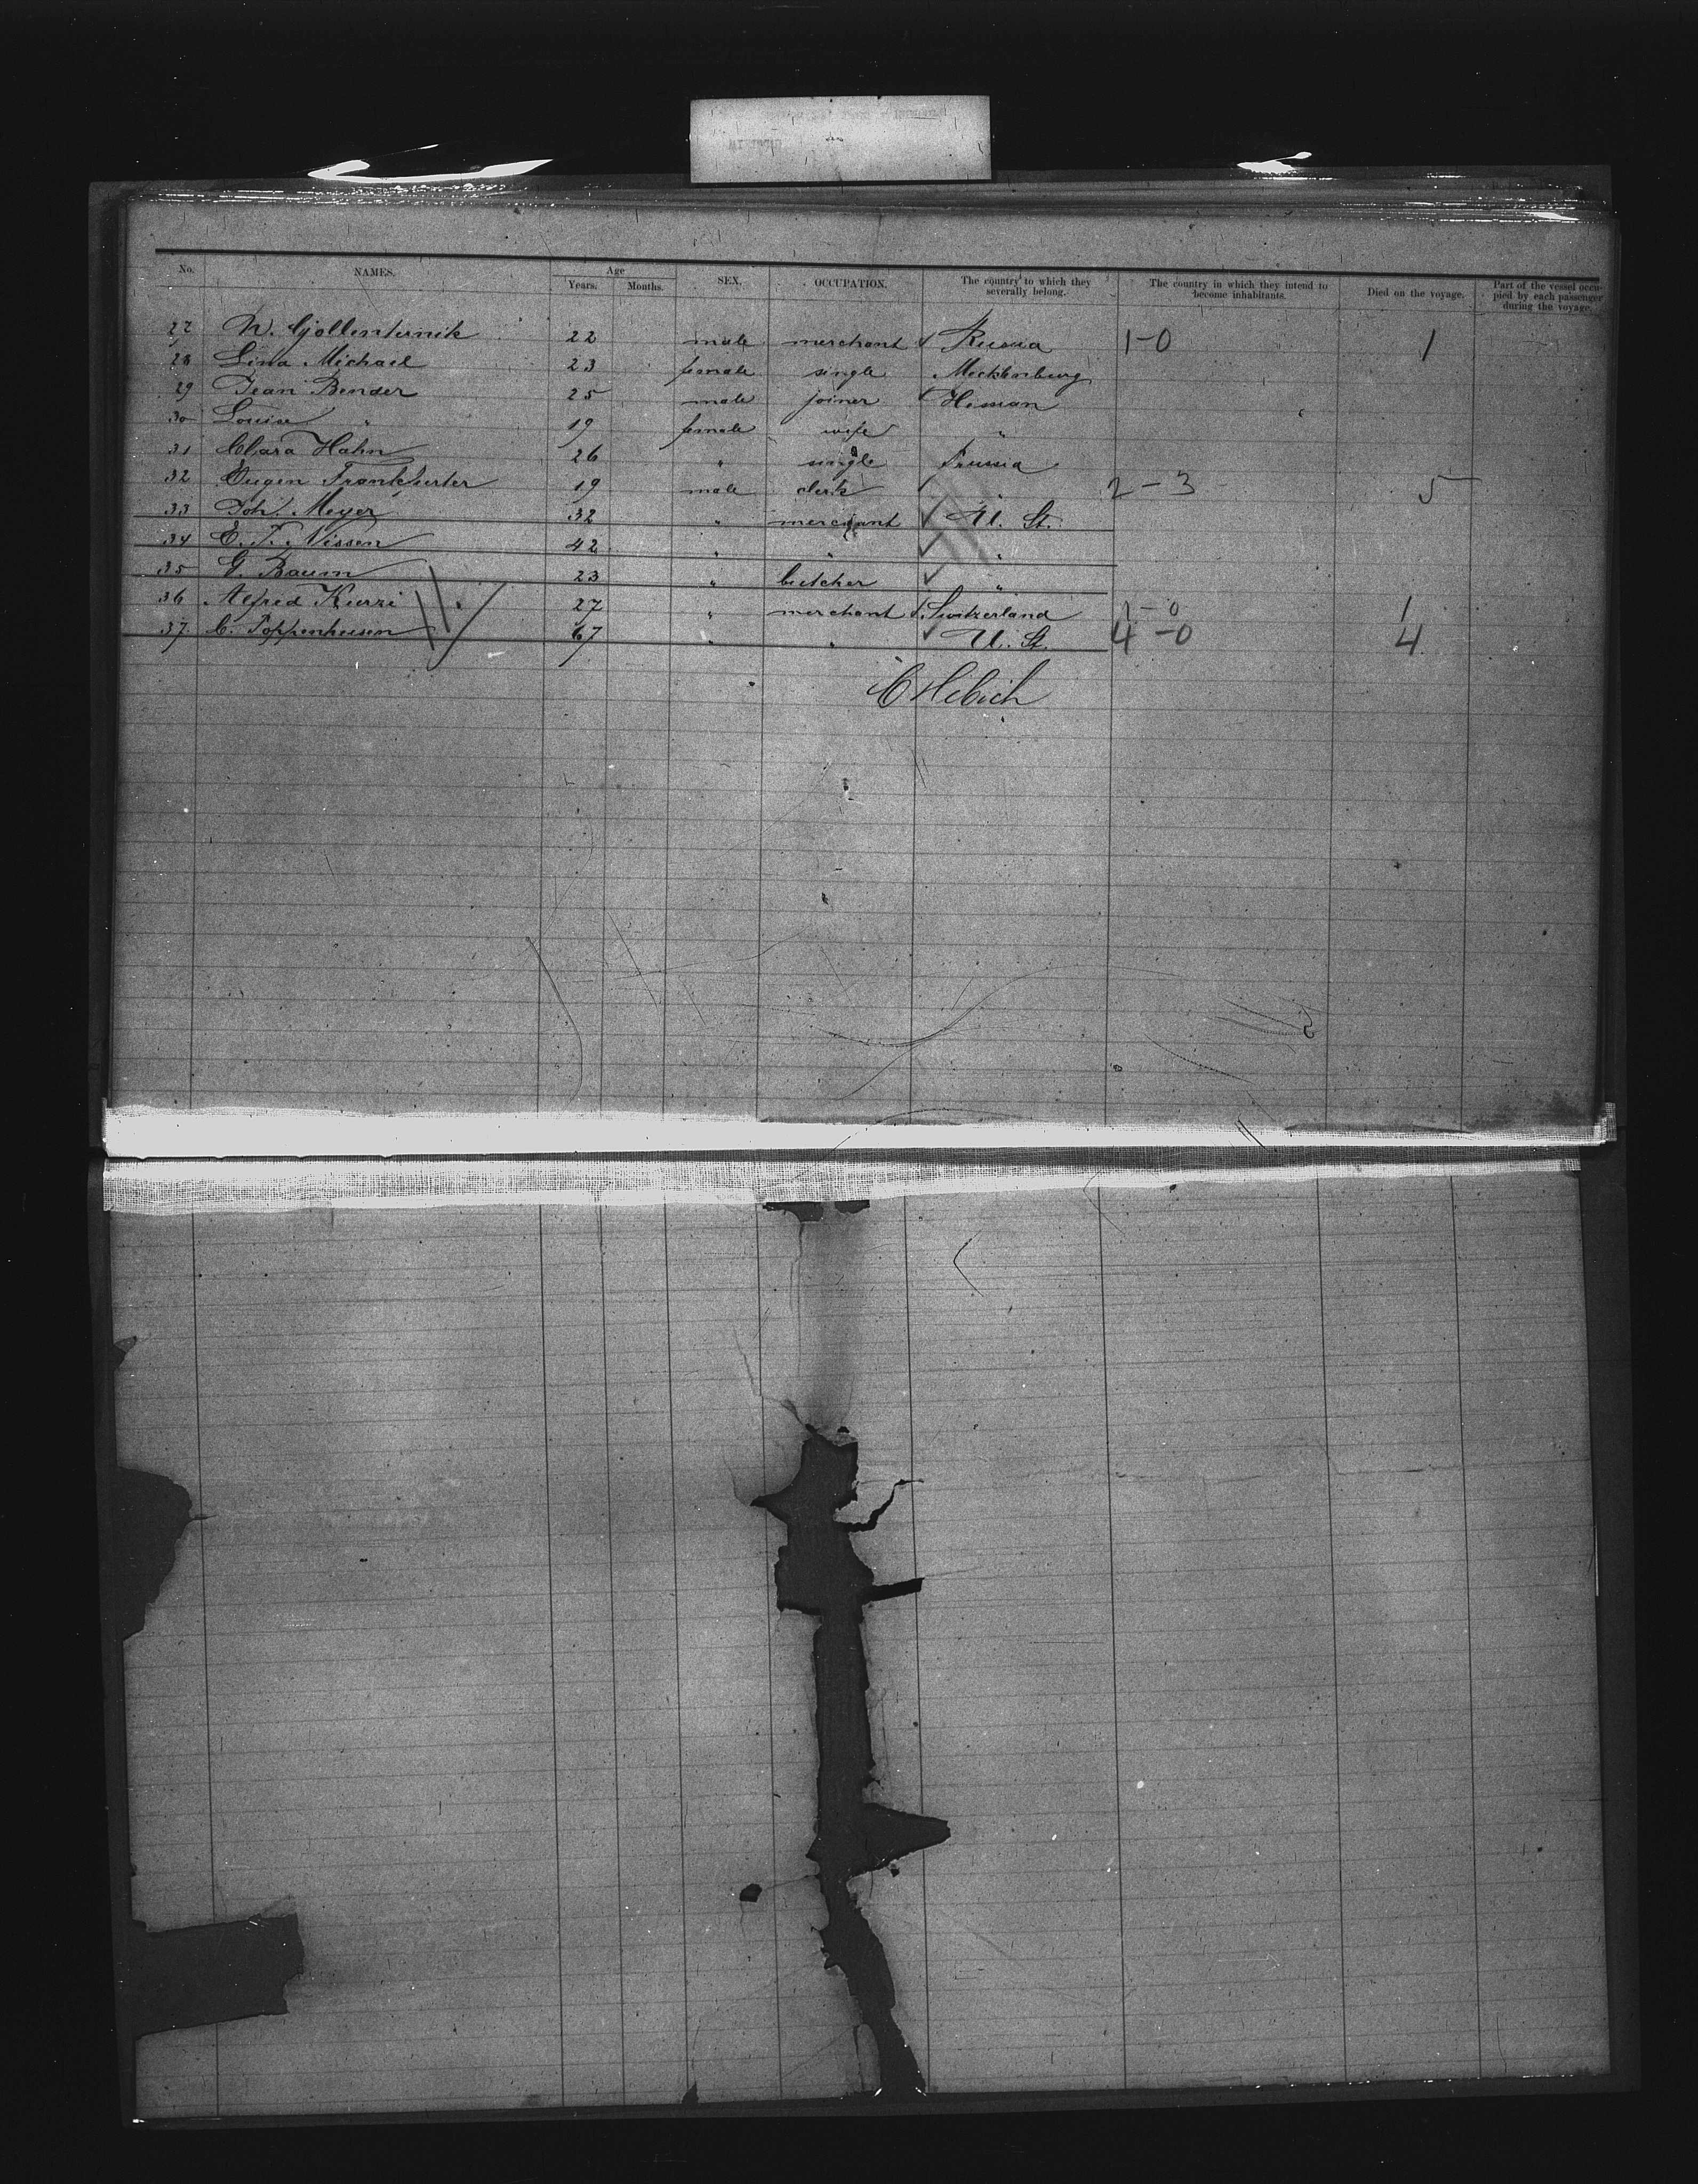 No. NAMES. Age Years. Months. SEX. OCCUPATION. The country to which they severally belong. The country in which they intend to become inhabitants. Died on the voyage. Part of the vessel occupied by each passenger during the voyage.
27 W. 22 male merchant Russia 1-0 1
28 Lina Michael 23 female single Mecklenburg
29 Jean Bender 25 male joiner Hessian
30 Louise " 19 female wife "
31 Clara Hahn 26 " single Prussia
32 Eugen Frankfurter 19 male clerk " 2-3 5
33 Joh. Meyer 32 " merchant U. St.
34 E. F. Nissen 42 " " "
35 G. Baum 23 " butcher "
36 Alfred Kurzi 27 " merchant Switzerland 1-0 1
37. C. Poppenhusen 67 " " U. St. 4-0 4
C Hebich